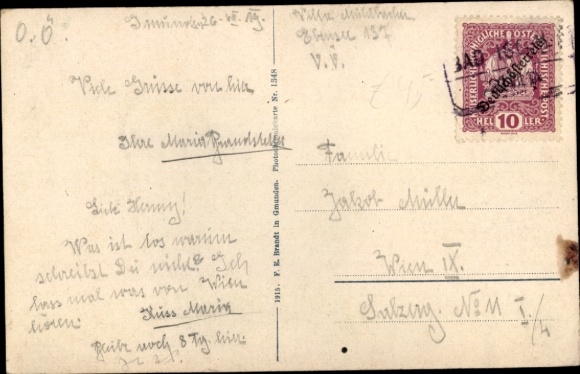 O.Ö.
Gmunden, 26. VII. 19.
Viele Grüsse von hier
Ihre Maria Brandstetter
Lieb Henny!
Was ist los warum
schreibst Du nicht? Ich
lass mal was von Wien
hören.
Kuss Maria
Bleibe noch 8 Tg. hier.
1915. F. E. Brandt in Gmunden. Photochromiekarte Nr. 1348
Villa Mühlbacher
Ebensee 137
KAISERLICHE KÖNIGLICHE ÖSTERREICHISCHE POST
Deutschösterreich
HELLER 10 HELLER
BAD
Familie
Jakob Müller
Wien IX.
Salzerg. No 11 I./4